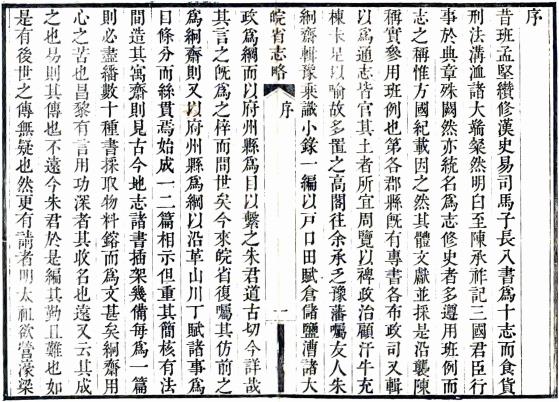 序
昔班孟堅纘修漢史易司馬子長八書爲十志而食貨
刑法溝洫諸大端粲然明白至陳承祚記三國君臣行
事於典章殊闕然亦統名爲志修史者多遵用班例而
志之稱惟方國紀載因之然其體文獻並採是沿襲陳
稱實參用班例也第各郡縣旣有專書各布政司又輯
以爲通志皆官其土者所宜周覽以裨政治顧汗牛充
棟未足以喻故多置之高閣往余承乏豫藩囑友人朱
絅齋輯豫乘識小錄一編以戸口田賦倉儲鹽漕諸大
皖省志略
序
一
政爲綱而以府州縣爲目以繫之朱君道古切今詳哉
其言之旣爲之梓而問世矣今來皖省復囑其仿前之
爲絅齋則又以府州縣爲綱以沿革山川丁賦諸事爲
目條分而絲貫焉始成一二篇相示但重其簡核有法
間造其寓齋則見古今地志諸書插架幾備每爲一篇
則必盡繙數十種書採取物料鎔而爲文甚矣絅齋用
心之苦也昌黎有言用功深者其收名也遠又云其成
之也易則其傳也不遠今朱君於是編其勤且難也如
是有後世之傳無疑也然更有請者明太祖欲營濠梁